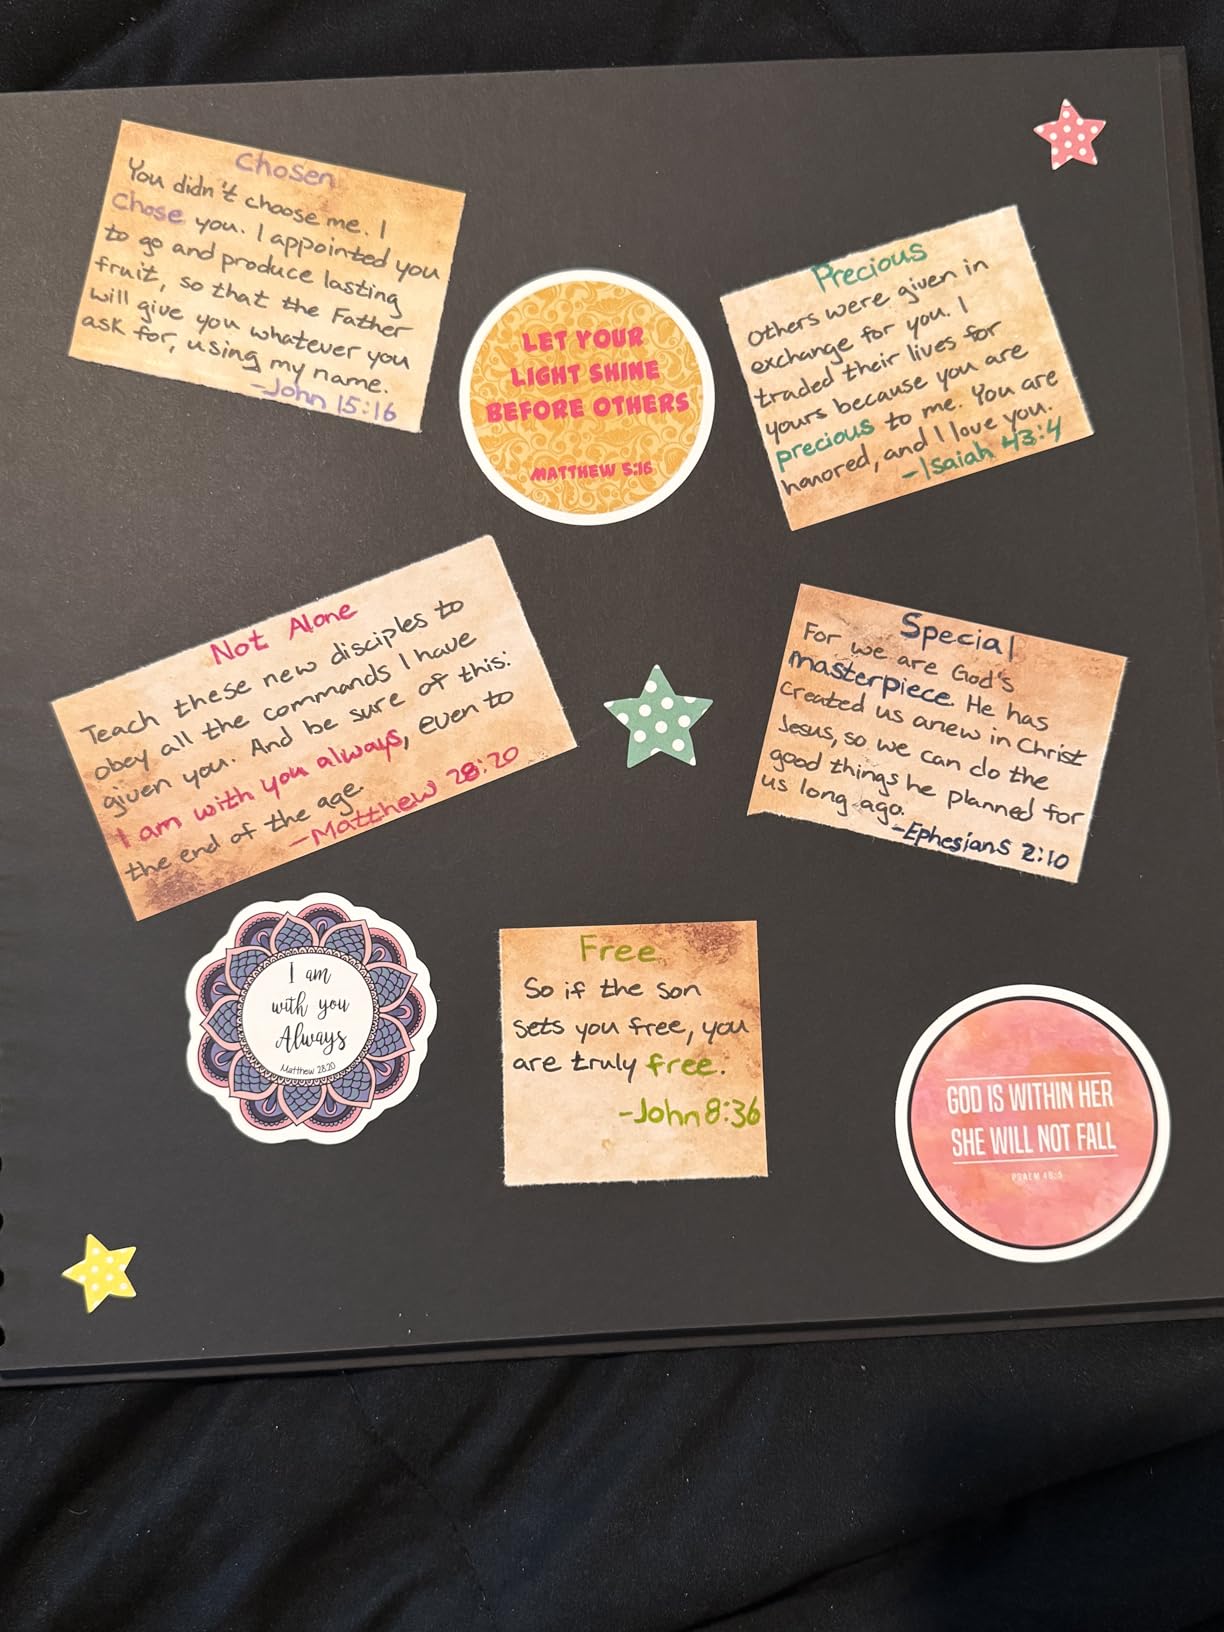 Chosen
You didn't choose me. I
Chose you. I appointed you
to go and produce lasting
fruit, so that the Father
will give you whatever you
ask for, using my name.
-John 15:16
LET YOUR
LIGHT SHINE
BEFORE OTHERS
MATTHEW 5:16
Precious
Others were given in
exchange for you. I
traded their lives for
yours because you are
precious to me. You are
honored, and I love you.
-Isaiah 43:4
Not Alone
Teach these new disciples to
obey all the commands I have
given you. And be sure of this:
I am with you always, even to
the end of the age.
-Matthew 28:20
Special
For we are God's
masterpiece. He has
created us anew in Christ
Jesus, so we can do the
good things he planned for
us long ago.
-Ephesians 2:10
I am
with you
Always
Matthew 28:20
Free
So if the son
sets you free, you
are truly free.
-John 8:36
GOD IS WITHIN HER
SHE WILL NOT FALL
PSALM 46:5